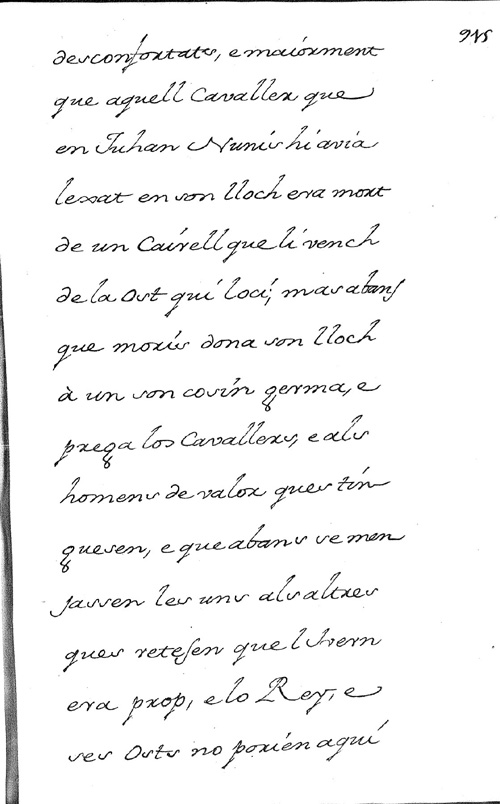 945
desconfortats, e maiorment
que aquell Cavaller que
en Juhan Nunis hi avia
lexat en son lloch era mort
de un Cairell que li vench
de la Ost qui loci; mas abans
que moris dona son lloch
à un son cosin germa, e
prega los Cavallers, e als
homens de valor ques tin
guesen, e que abans se men
jassen les uns als altres
ques retesen que l Ivern
era prop, e lo Rey, e
ses Osts no porien aquí